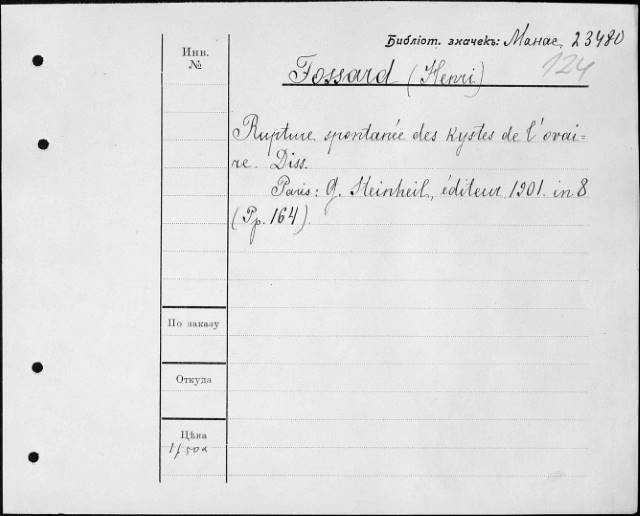 Библіот. значекъ: Манас. 23480
124
Инв.
№
Fossard (Henri)
Rupture spontanée des kystes de l'ovai=
re. Diss.
Paris: G. Steinheil, éditeur, 1901. in 8
(Pp. 164).
По заказу
Откуда
Цѣна